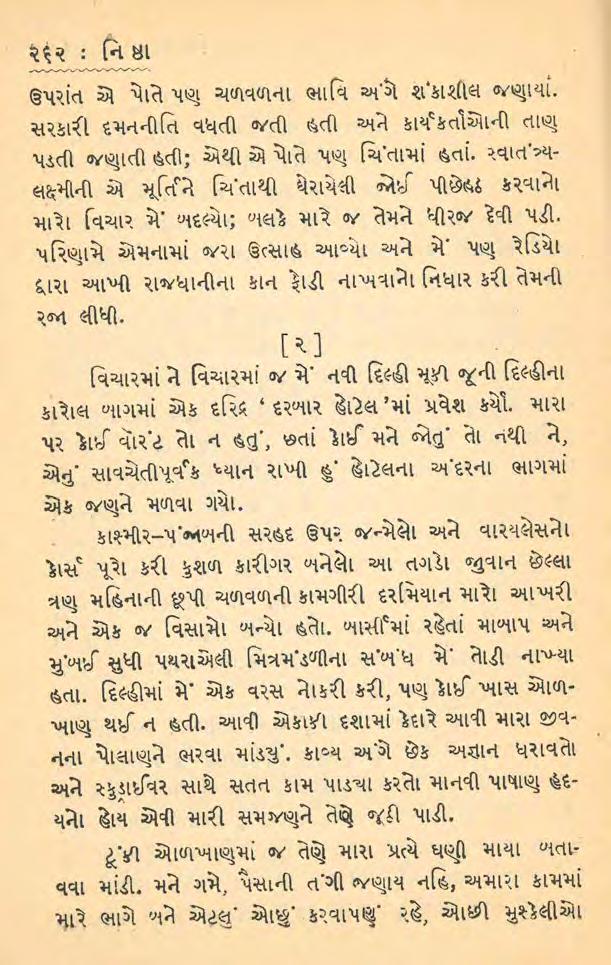 ૨૬૨ : નિષ્ઠા
ઉપરાંત એ પોતે પણ ચળવળના ભાવિ અંગે શંકાશીલ જણાયાં.
સરકારી દમનનીતિ વધતી જતી હતી અને કાર્યકર્તાઓની તાણ
પડતી જણાતી હતી; એથી એ પોતે પણ ચિંતામાં હતાં. સ્વાતંત્ર્ય-
લક્ષ્મીની એ મૂર્તિને ચિંતાથી ઘેરાયેલી જોઈ પીછેહઠ કરવાનો
મારો વિચાર મેં બદલ્યો; બલકે મારે જ તેમને ધીરજ દેવી પડી.
પરિણામે એમનામાં જરા ઉત્સાહ આવ્યો અને મેં પણ રેડિયો
દ્વારા આખી રાજધાનીના કાન ફોડી નાખવાનો નિર્ધાર કરી તેમની
રજા લીધી.
[ ૨ ]
વિચારમાં ને વિચારમાં જ મેં નવી દિલ્હી મૂકી જૂની દિલ્હીના
કારોલ બાગમાં એક દરિદ્ર ‘ દરબાર હોટેલ ’માં પ્રવેશ કર્યો. મારા
પર કોઈ વૉરંટ તો ન હતું, છતાં કોઈ મને જોતું તો નથી ને,
એનું સાવચેતીપૂર્વક ધ્યાન રાખી હું હોટેલના અંદરના ભાગમાં
એક જણને મળવા ગયો.
કાશ્મીર–પંજાબની સરહદ ઉપર જન્મેલો અને વાયરલેસનો
કોર્સ પૂરો કરી કુશળ કારીગર બનેલો આ તગડો જુવાન છેલ્લા
ત્રણ મહિનાની છૂપી ચળવળની કામગીરી દરમિયાન મારો આખરી
અને એક જ વિસામો બન્યો હતો. બાર્સીમાં રહેતાં માબાપ અને
મુંબઈ સુધી પથરાએલી મિત્રમંડળીના સંબંધ મેં તોડી નાખ્યા
હતા. દિલ્હીમાં મેં એક વરસ નોકરી કરી, પણ કોઈ ખાસ ઓળ-
ખાણ થઈ ન હતી. આવી એકાકી દશામાં કેદારે આવી મારા જીવ-
નના પોલાણને ભરવા માંડયું. કાવ્ય અંગે છેક અજ્ઞાન ધરાવતો
અને સ્ક્રુડ્રાઈવર સાથે સતત કામ પાડ્યા કરતો માનવી પાષાણ હૃદ-
યનો હોય એવી મારી સમજણને તેણે જૂઠી પાડી.
ટૂંકી ઓળખાણમાં જ તેણે મારા પ્રત્યે ઘણી માયા બતા-
વવા માંડી. મને ગમે, પૈસાની તંગી જણાય નહિ, અમારા કામમાં
મારે ભાગે બને એટલું ઓછું કરવાપણું રહે, ઓછી મુશ્કેલીઓ